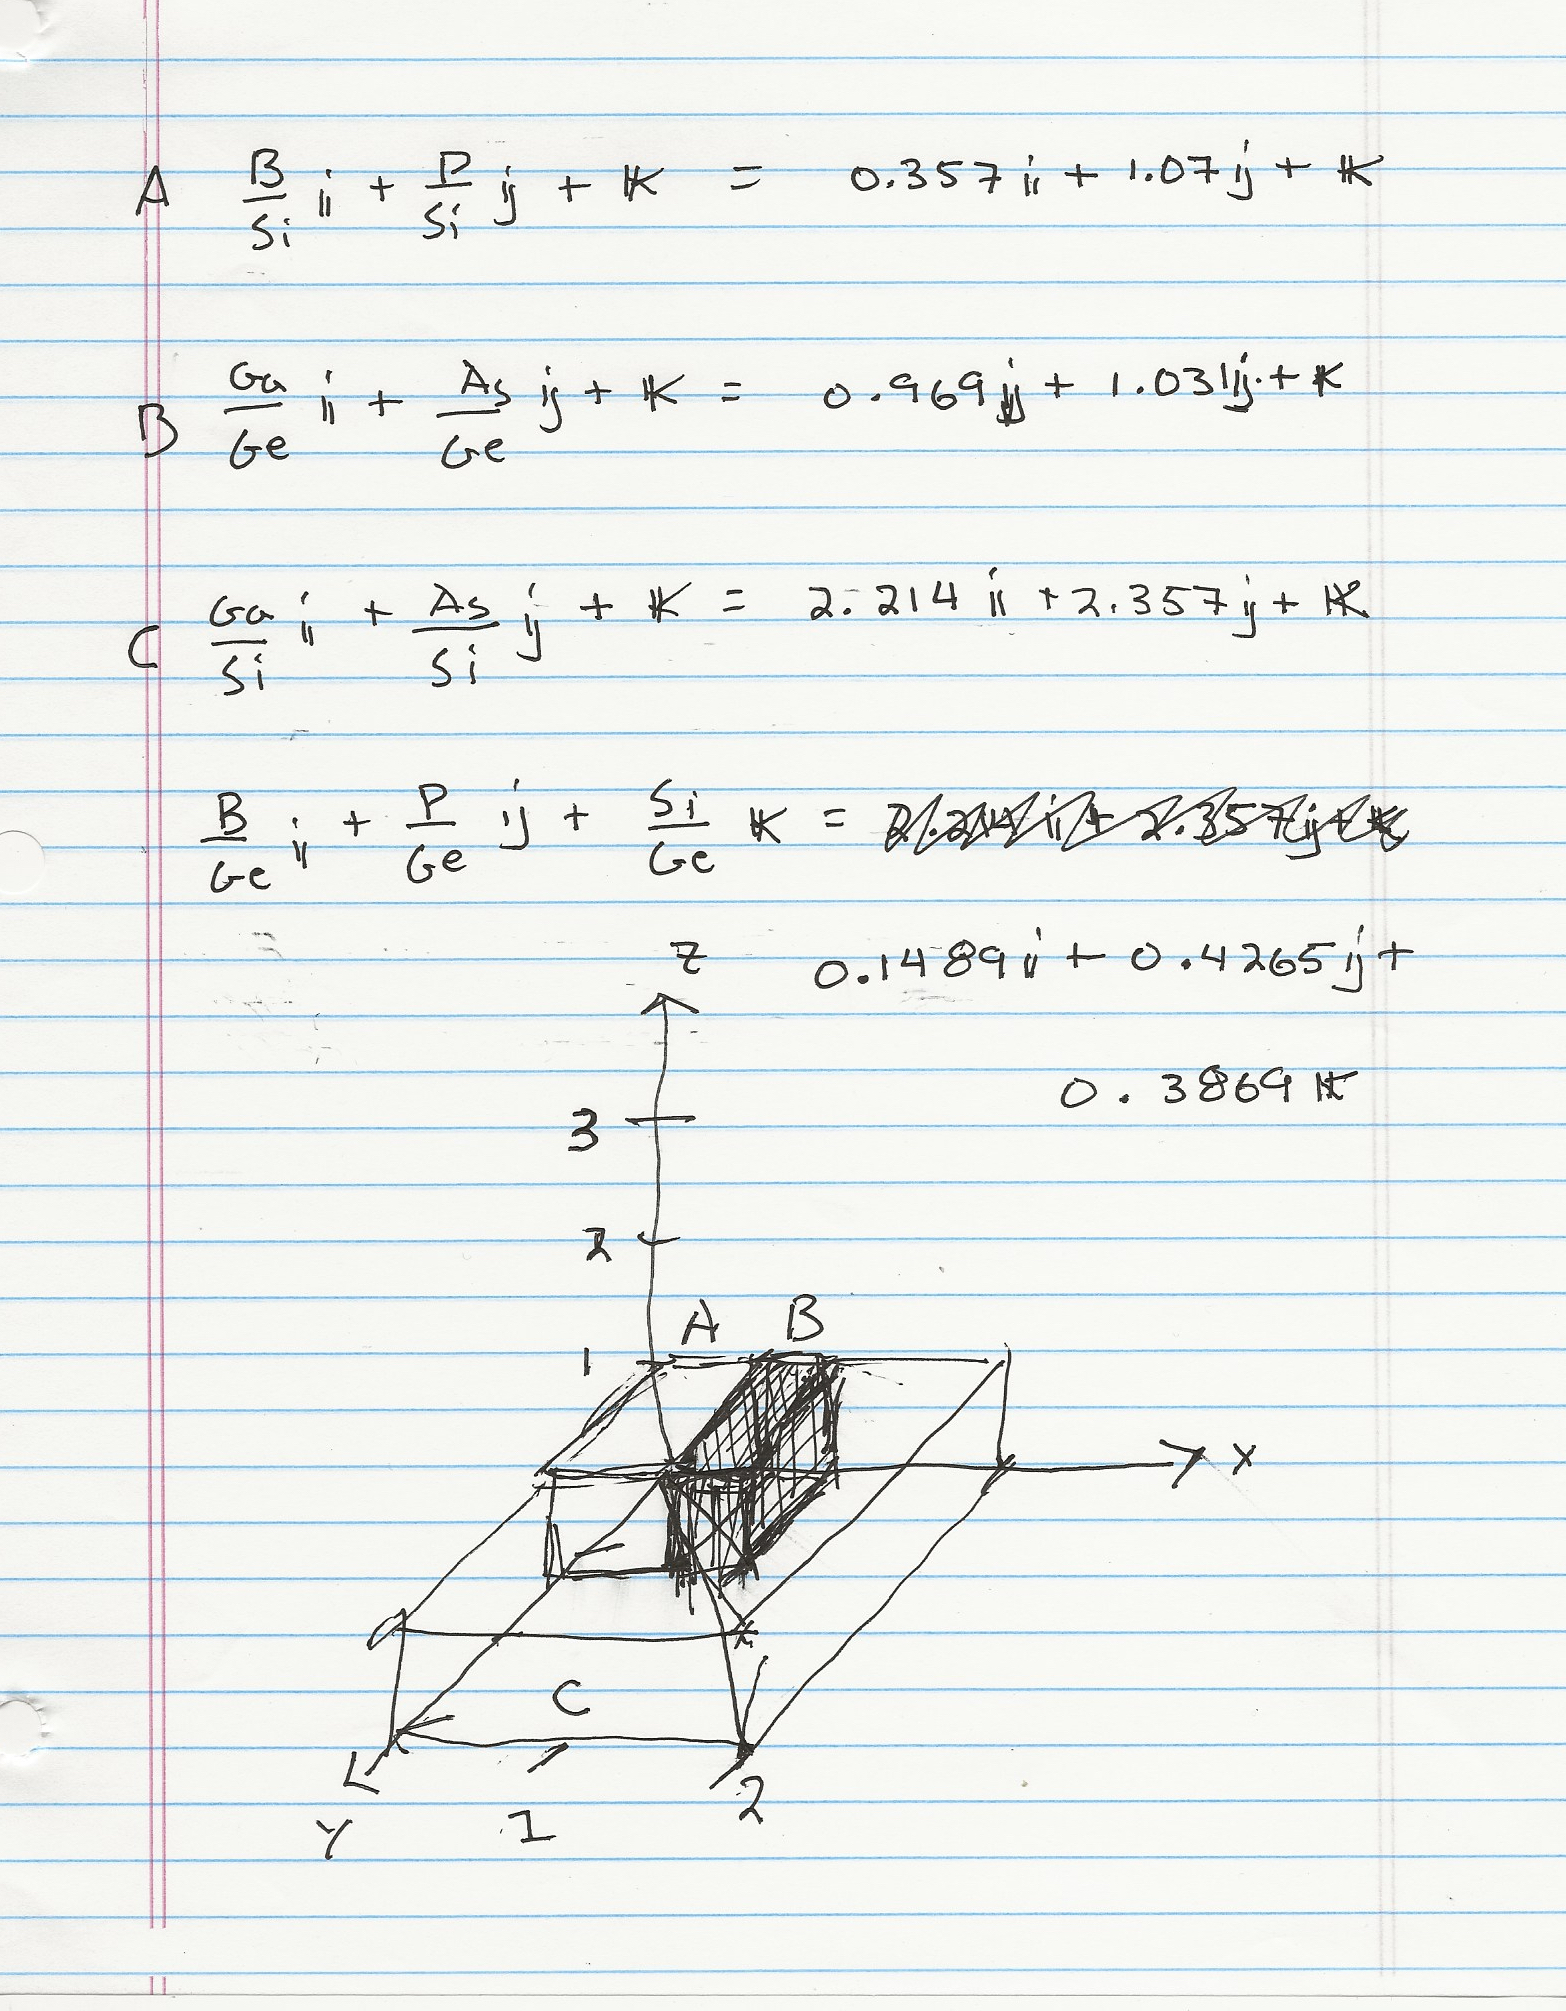 A B/Si i + P/Si j + K = 0.357 i + 1.07 j + K
B Ga/Ge i + As/Ge j + K = 0.969 j + 1.031 j + K
C Ga/Si i + As/Si j + K = 2.214 i + 2.357 j + K
B/Ge i + P/Ge j + Si/Ge K = 2.214 i + 2.357 j + K
0.1489 i + 0.4265 j +
0.3869 K
Z
3
2
A B
1
X
C
Y 1 2